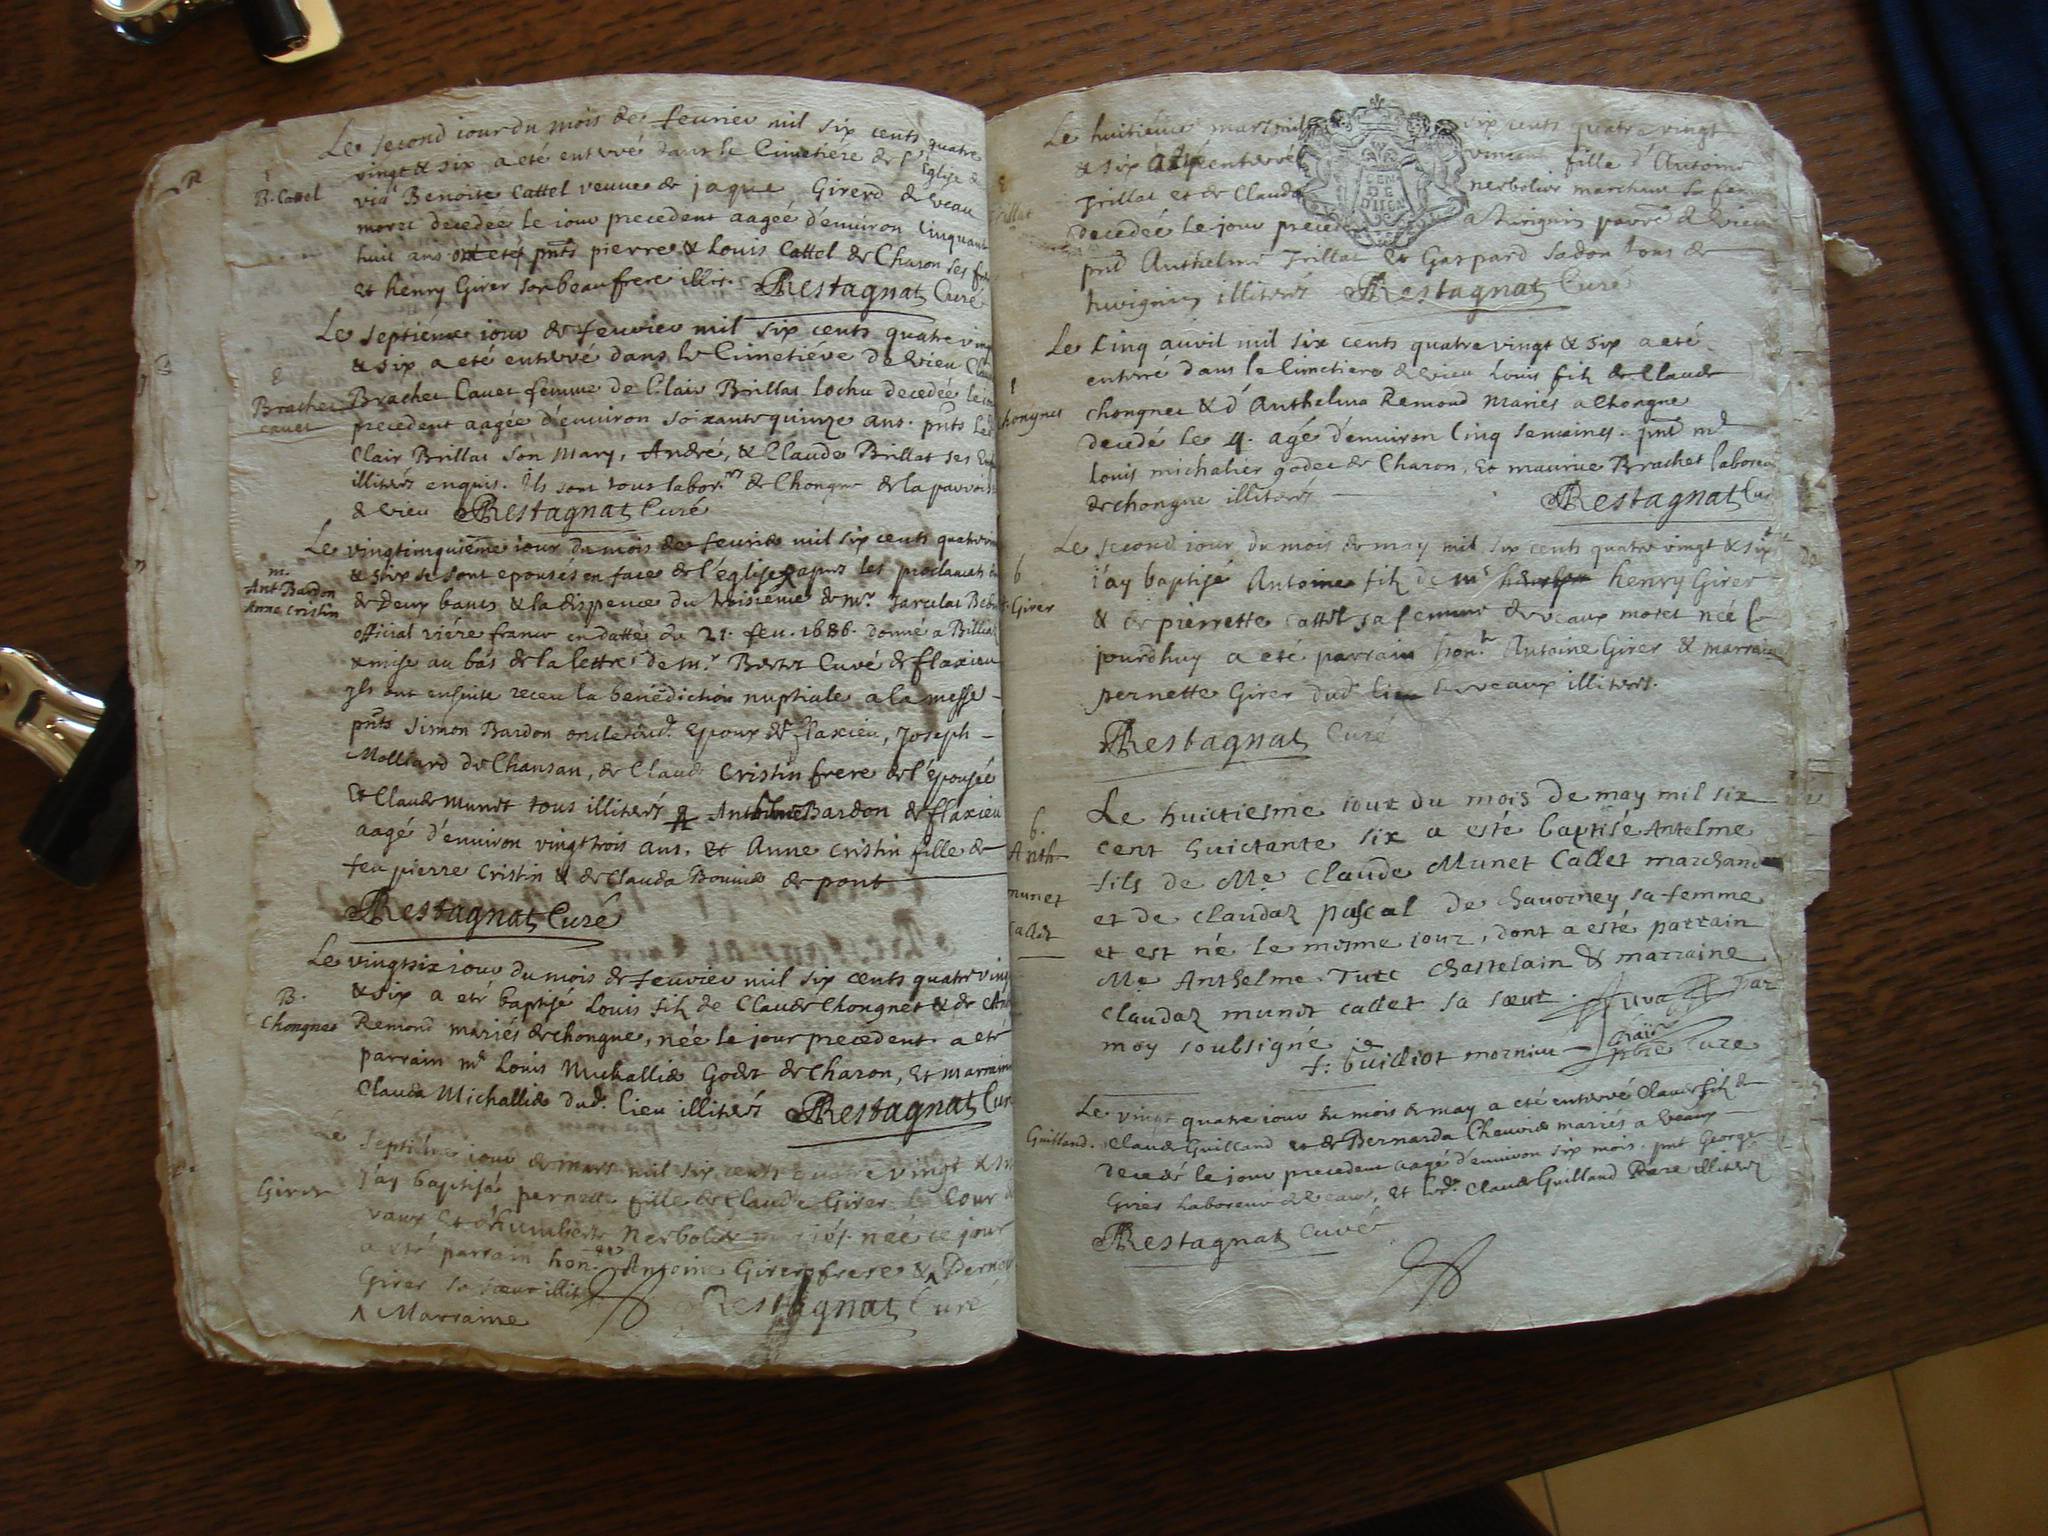 Le second iour du mois de feurier mil six cents quatre
vingt & six a eté enterré dans le Cimetiére de l'Eglise de
B. Cattel
vieu Benoite Cattel veuue de jaque Girerd de veau
moret decedée le iour precedent aageé d'enuiron Cinquant
huit ans ont etés pnts pierre & Louis Cattel de Charon ses fre
et henry Girer son beau frere illit. Restagnat Curé
Le septiéme iour de feurier mil six cents quatre ving
& six a eté enterré dans le Cimetiére de vieu
Brachet Cauet
Brachet Cauet femme de Clair Brillat Lochu decedée le iou
precedent aagée d'enuiron soixante quinze ans. pnts led
Clair Brillat son mary, André, & Claude Brillat ses
illiterés enquis. Ils sont tous labor.rs de Chongne de la parrois
de vieu Restagnat Curé
Le vingtcinquiéme iour du mois de feurier mil six cents quatre vin
m. Ant Bardon Anne Cristin
& six se sont epousés en face de l'eglise apres les proclamati
de deux bancs & la dispence du troisiéme de Mr. Jarcelat
official riére france en datte du 21. feu. 1686. donné a Billiat
& mise au bás de la lettre de mr. Curé de flaxieu
Ils ont ensuite receu la benédiction nuptiale a la messe
pnts Simon Bardon oncle dud. Epoux de flaxieu, Joseph
Molliard de Chansan, de Claude Cristin frere de l'epousée
Et Claude Munet tous illiterés Anthelme Bardon de flaxieu
aagé d'enuiron vingt trois ans, et Anne Cristin fille de
feu pierre Cristin & de Clauda de pont
Restagnat Curé
Le vingtsix iour du mois de feurier mil six cents quatre ving
B. Chongnet
& six a eté baptisé Louis filz de Claude Chongnet & de Ant
Remond mariés de chongne, née le jour precedent a eté
parrain mr Louis Michallié Godet de Charon, Et marraine
Clauda Michallié dud. lieu illiterés Restagnat Curé
Le septiéme iour de mars mil six cents quatre vingt & six
Girer
J'ay baptisé pernette fille de Claude Girer
vaux Et d'humberte Nerbolier mariés. neé ce jour
a eté parrain hon. Antoine Girer frere & ^ Pernet
Girer sa soeur illit Restagnat Curé
^ Marraine
Le huitiéme mars mil six cents quatre vingt
& six a eté enterré fille d'Antoine
Trillat
Trillat et de Clauda nerbolier marchans sa femme
decedée le jour precedent a huvignin parré de vieu
pnt Anthelme Trillat Et Gaspard Sadon tous de
huvignin illiterés Restagnat Curé
Le Cinq auril mil six cents quatre vingt & six a eté
enterré dans le Cimetiere de vieu Louis filz de Claude
Chongnet
chongnet & d'Anthelma Remond Mariés a Chongne
decedé le 4. agé d'enuiron Cinq semaines. pnt mr
Louis michalier godet de Charon, Et maurice Brachet laboreur
de chongne illiterés Restagnat Cur
Le second iour du mois de may mil six cents quatre vingt & six
b Girer
J'ay baptisé Antoine filz de Mr henry Girer
& de pierrette Cattel sa femme de veaux moret neé le
jourdhuy a eté parrain hon. Antoine Girer & marraine
pernette Girer dud. lieu de veaux illiterés.
Restagnat Curé
Le huictiesme iour du mois de may mil six
b. Anth munet Callet
cent huictante six a esté baptisé Antelme
fils de Me Claude Munet Callet marchand
et de Claudaz pascal de Chauorney sa femme
et est né le mesme iour, dont a esté parrain
Me Anthelme Chastelain & marraine
Claudaz munet callet sa soeur. par
moy soubsigné
f: Guilliot mornieu pbre Curé
Le vingt quatre iour du mois de may a eté enterré Claude filz de
Guilland.
Claude Guilland et de Bernarda Cheurier mariés a veaux
decedé le jour precedent aagé d'enuiron six mois. pnt George
Girer Laboreur de veaux, Et led. Claude Guilland Pere illiterés
Restagnat Curé